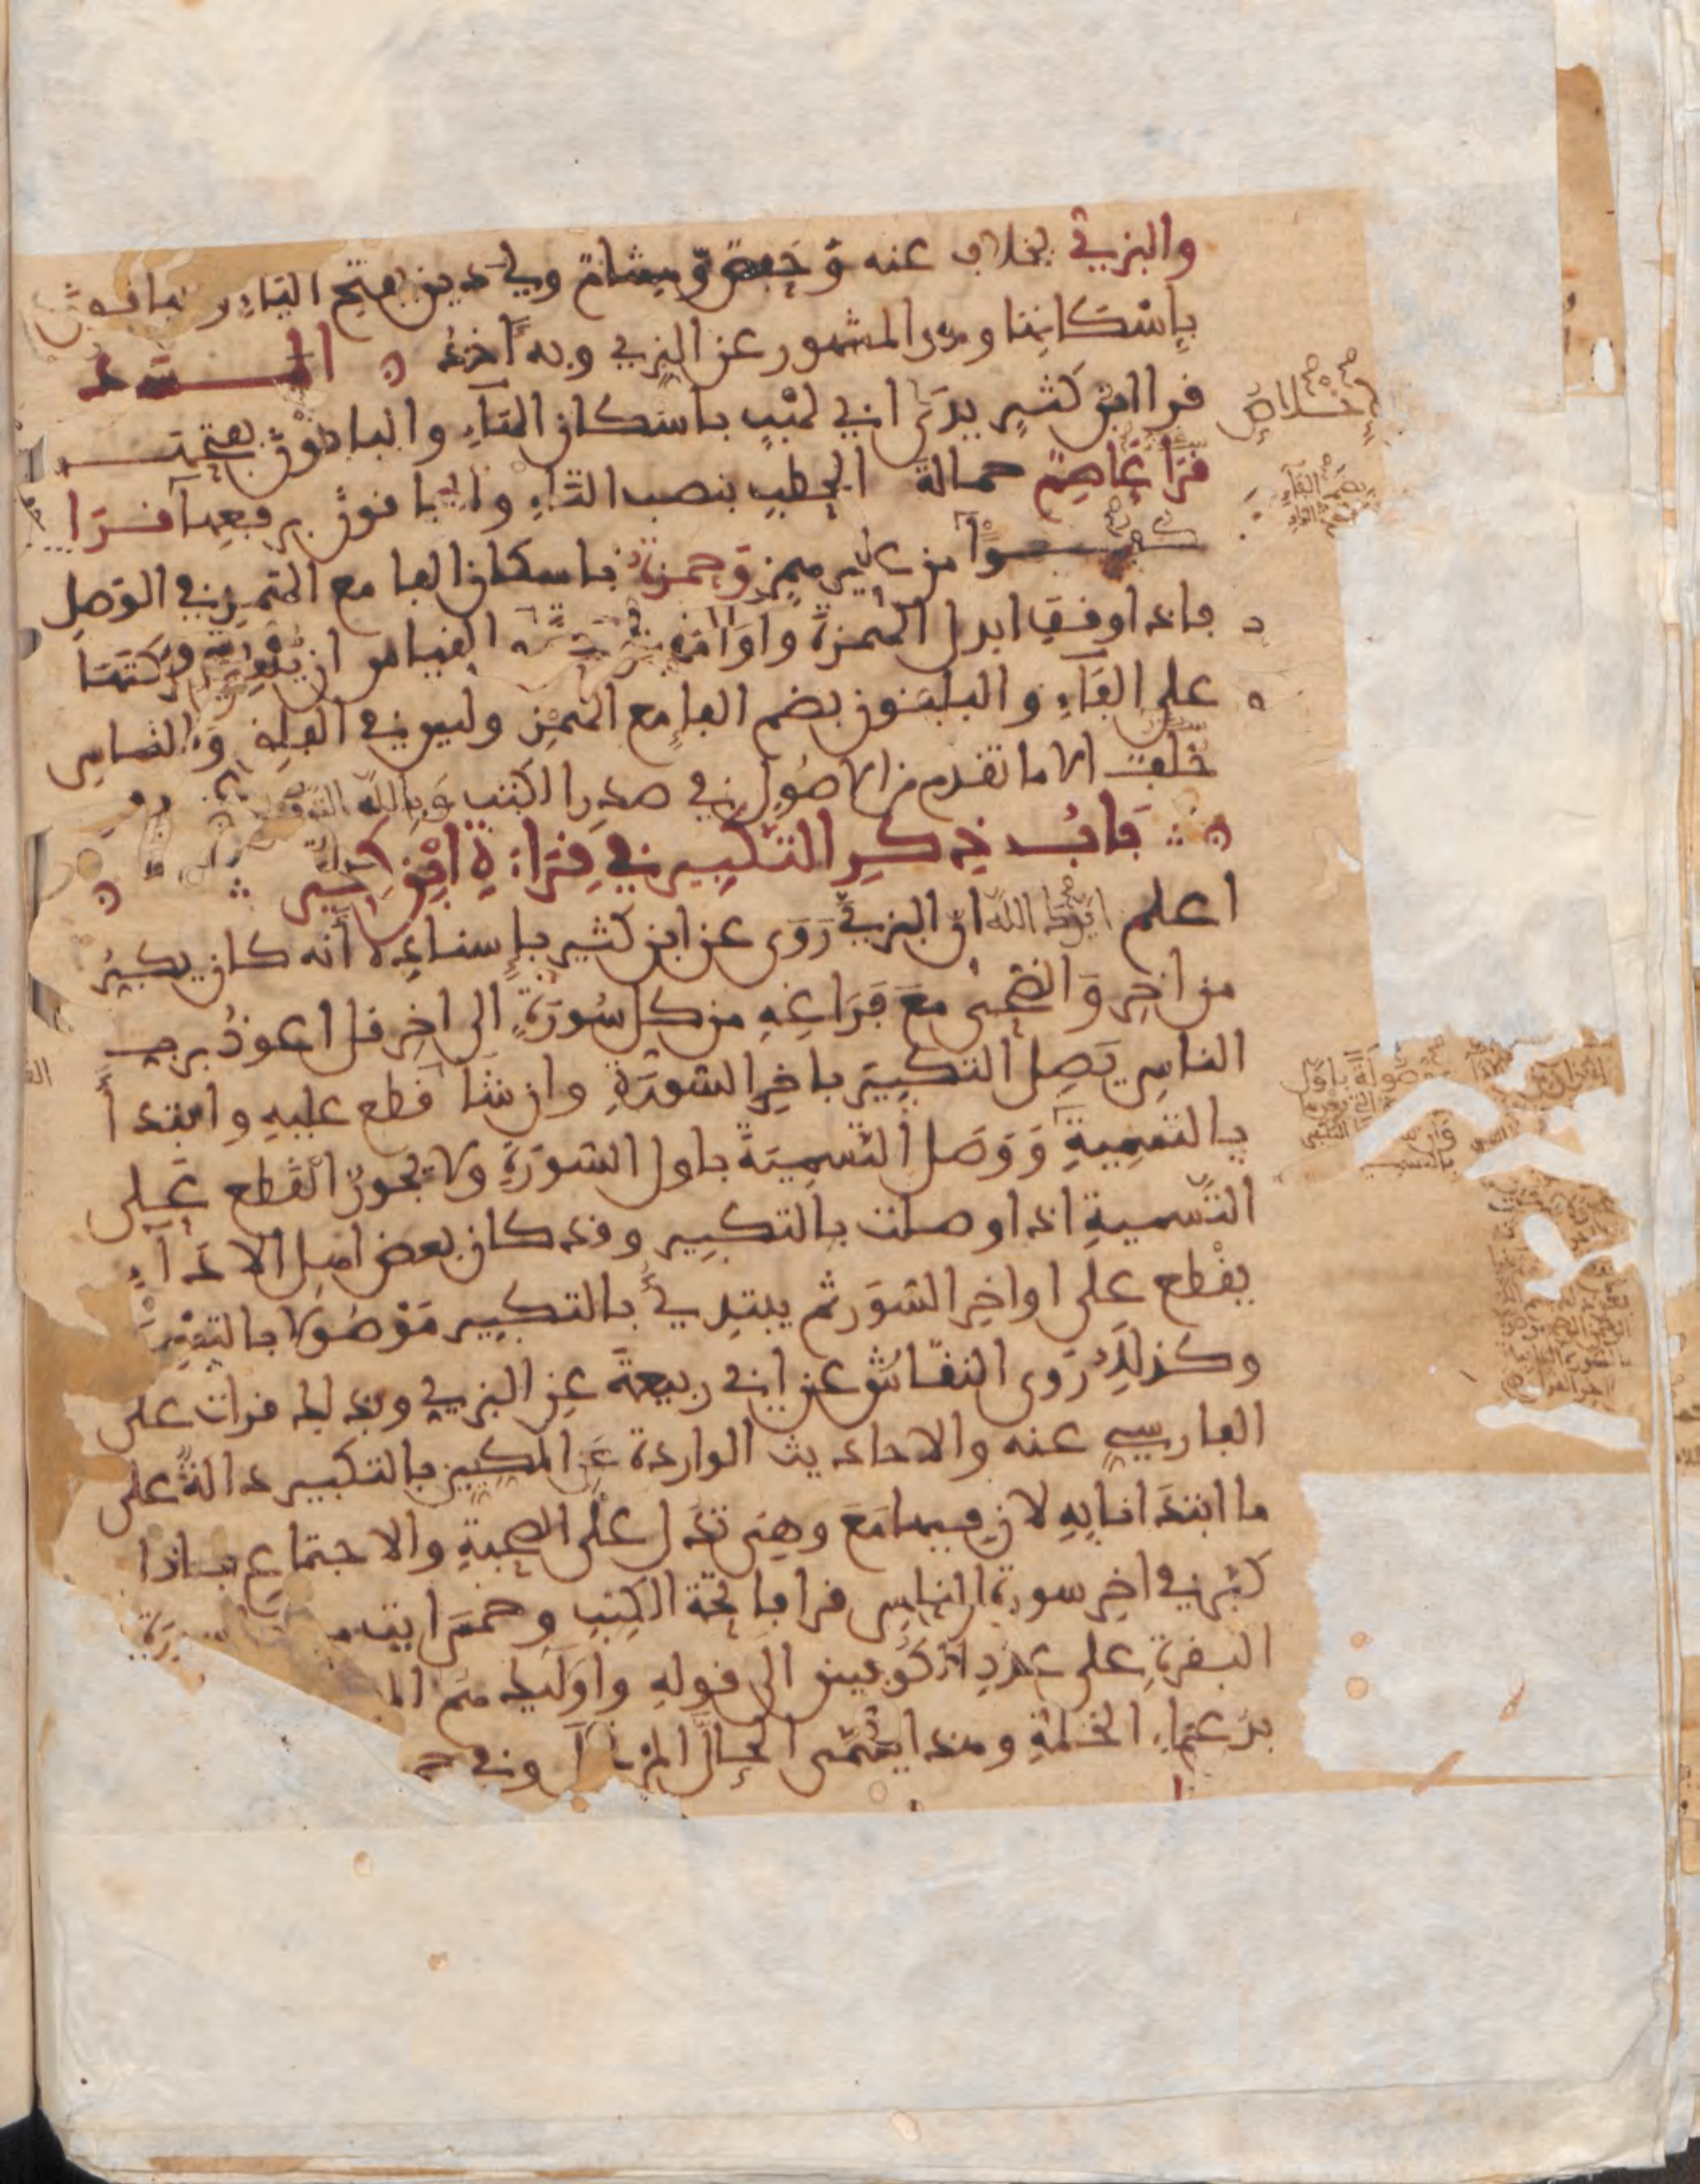 والبزي بخلاف عنه وحفص وهشام ولي دين بفتح الياء والباقون
بإسكانها وهو المشهور عن البزي وبه آخذ المسد
قرا ابن كثير يدى ابي لهب باسكان الهاء والباقون بفتحها
قرا عاصم حمالة الحطب بنصب التاء والباقون برفعها قرا
كفوا من غير همز وحمزة باسكان الفا مع الهمز في الوصل
فاذا وقف ابدل الهمزة واوا القياس ان حركتها
على الفاء والباقون بضم الفا مع الهمز وليس في الفلق والناس
خلف الا ما تقدم من الاصول في صدر الكتب وبالله التوفيق
باب ذكر التكبير في قراءة ابن كثير
اعلم ايدك الله ان البزي روى عن ابن كثير بإسناده أنه كان يكبر
من اخر والضحى مع فراغه من كل سورة الى اخر قل اعوذ برب
الناس يصل التكبير باخر السورة وان شا قطع عليه وابتدأ
بالتسمية ووصل التسمية باول السورة ولا يجوز القطع على
التسمية اذا وصلت بالتكبير وقد كان بعض اهل الاداء
يقطع على اواخر السور ثم يبتدئ بالتكبير موصولا بالتسمية
وكذلك روى النقاش عن ابي ربيعة عن البزي وبذلك قرات على
الفارسي عنه والاحاديث الواردة عن المكيين بالتكبير دالة على
ما ابتدانا به لان فيها مع وهي تدل على الصحبة والاجتماع فاذا
كبر في اخر سورة الناس قرا فاتحة الكتب وخمس ايت
البقرة على عدد الكوفيين الى قوله واوليك هم الم
بدعاء الختمة وهذا يسمى الحال المرتحل وفي